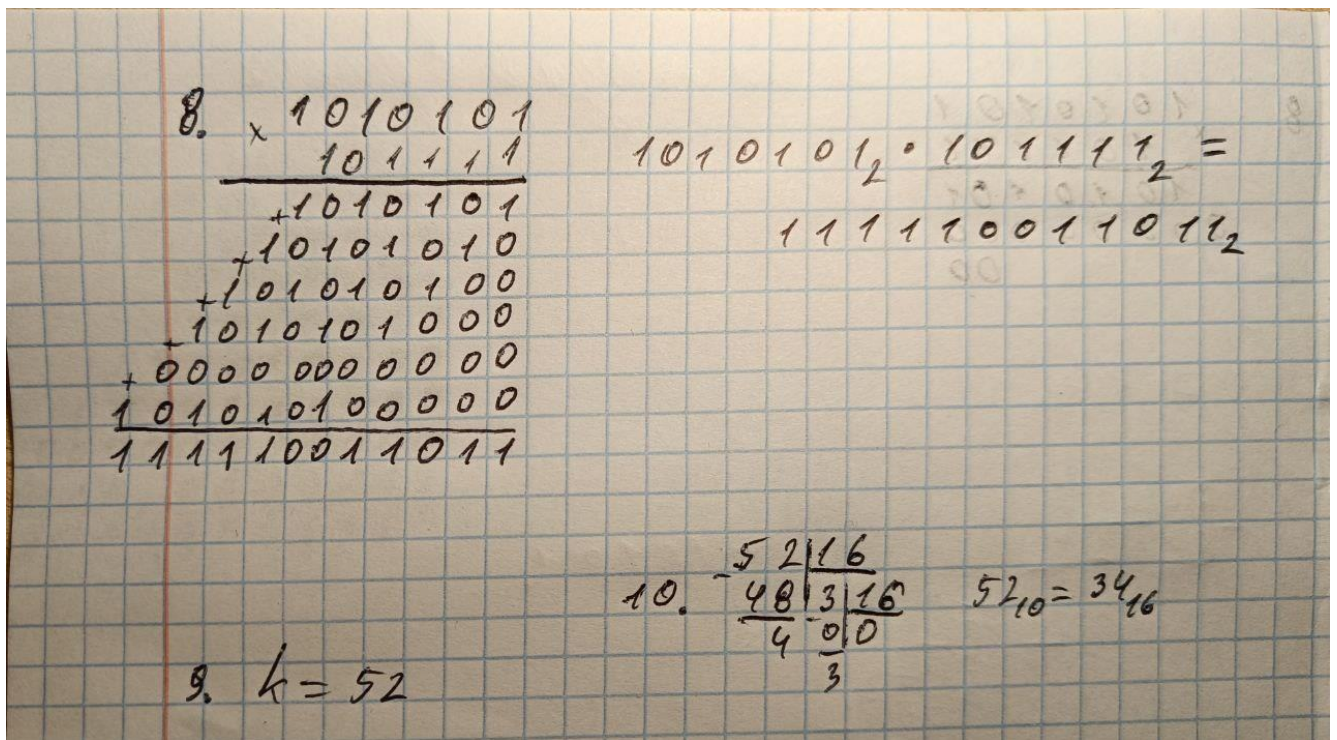 8. × 1010101
101111
+1010101
+10101010
+101010100
+1010101000
+00000000000
101010100000
111110011011
1010101₂ · 101111₂ =
111110011011₂
9. k = 52
10. -52|16
48|3|16
4 -0|0
3
52₁₀ = 34₁₆